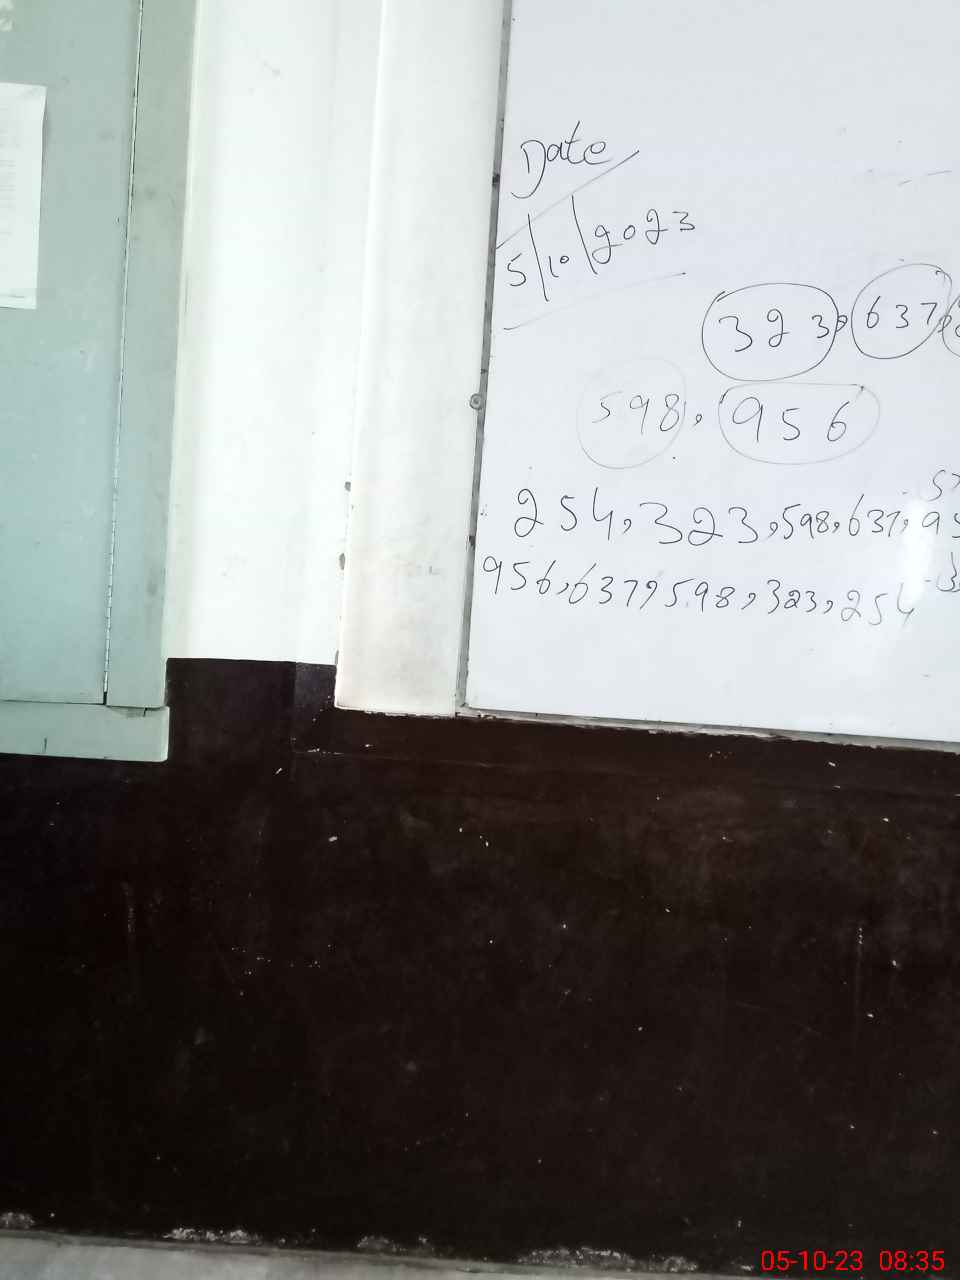 Date
5/10/2023
323, 637,
598, 956
254, 323, 598, 637,
956, 637, 598, 323, 254
05-10-23 08:35